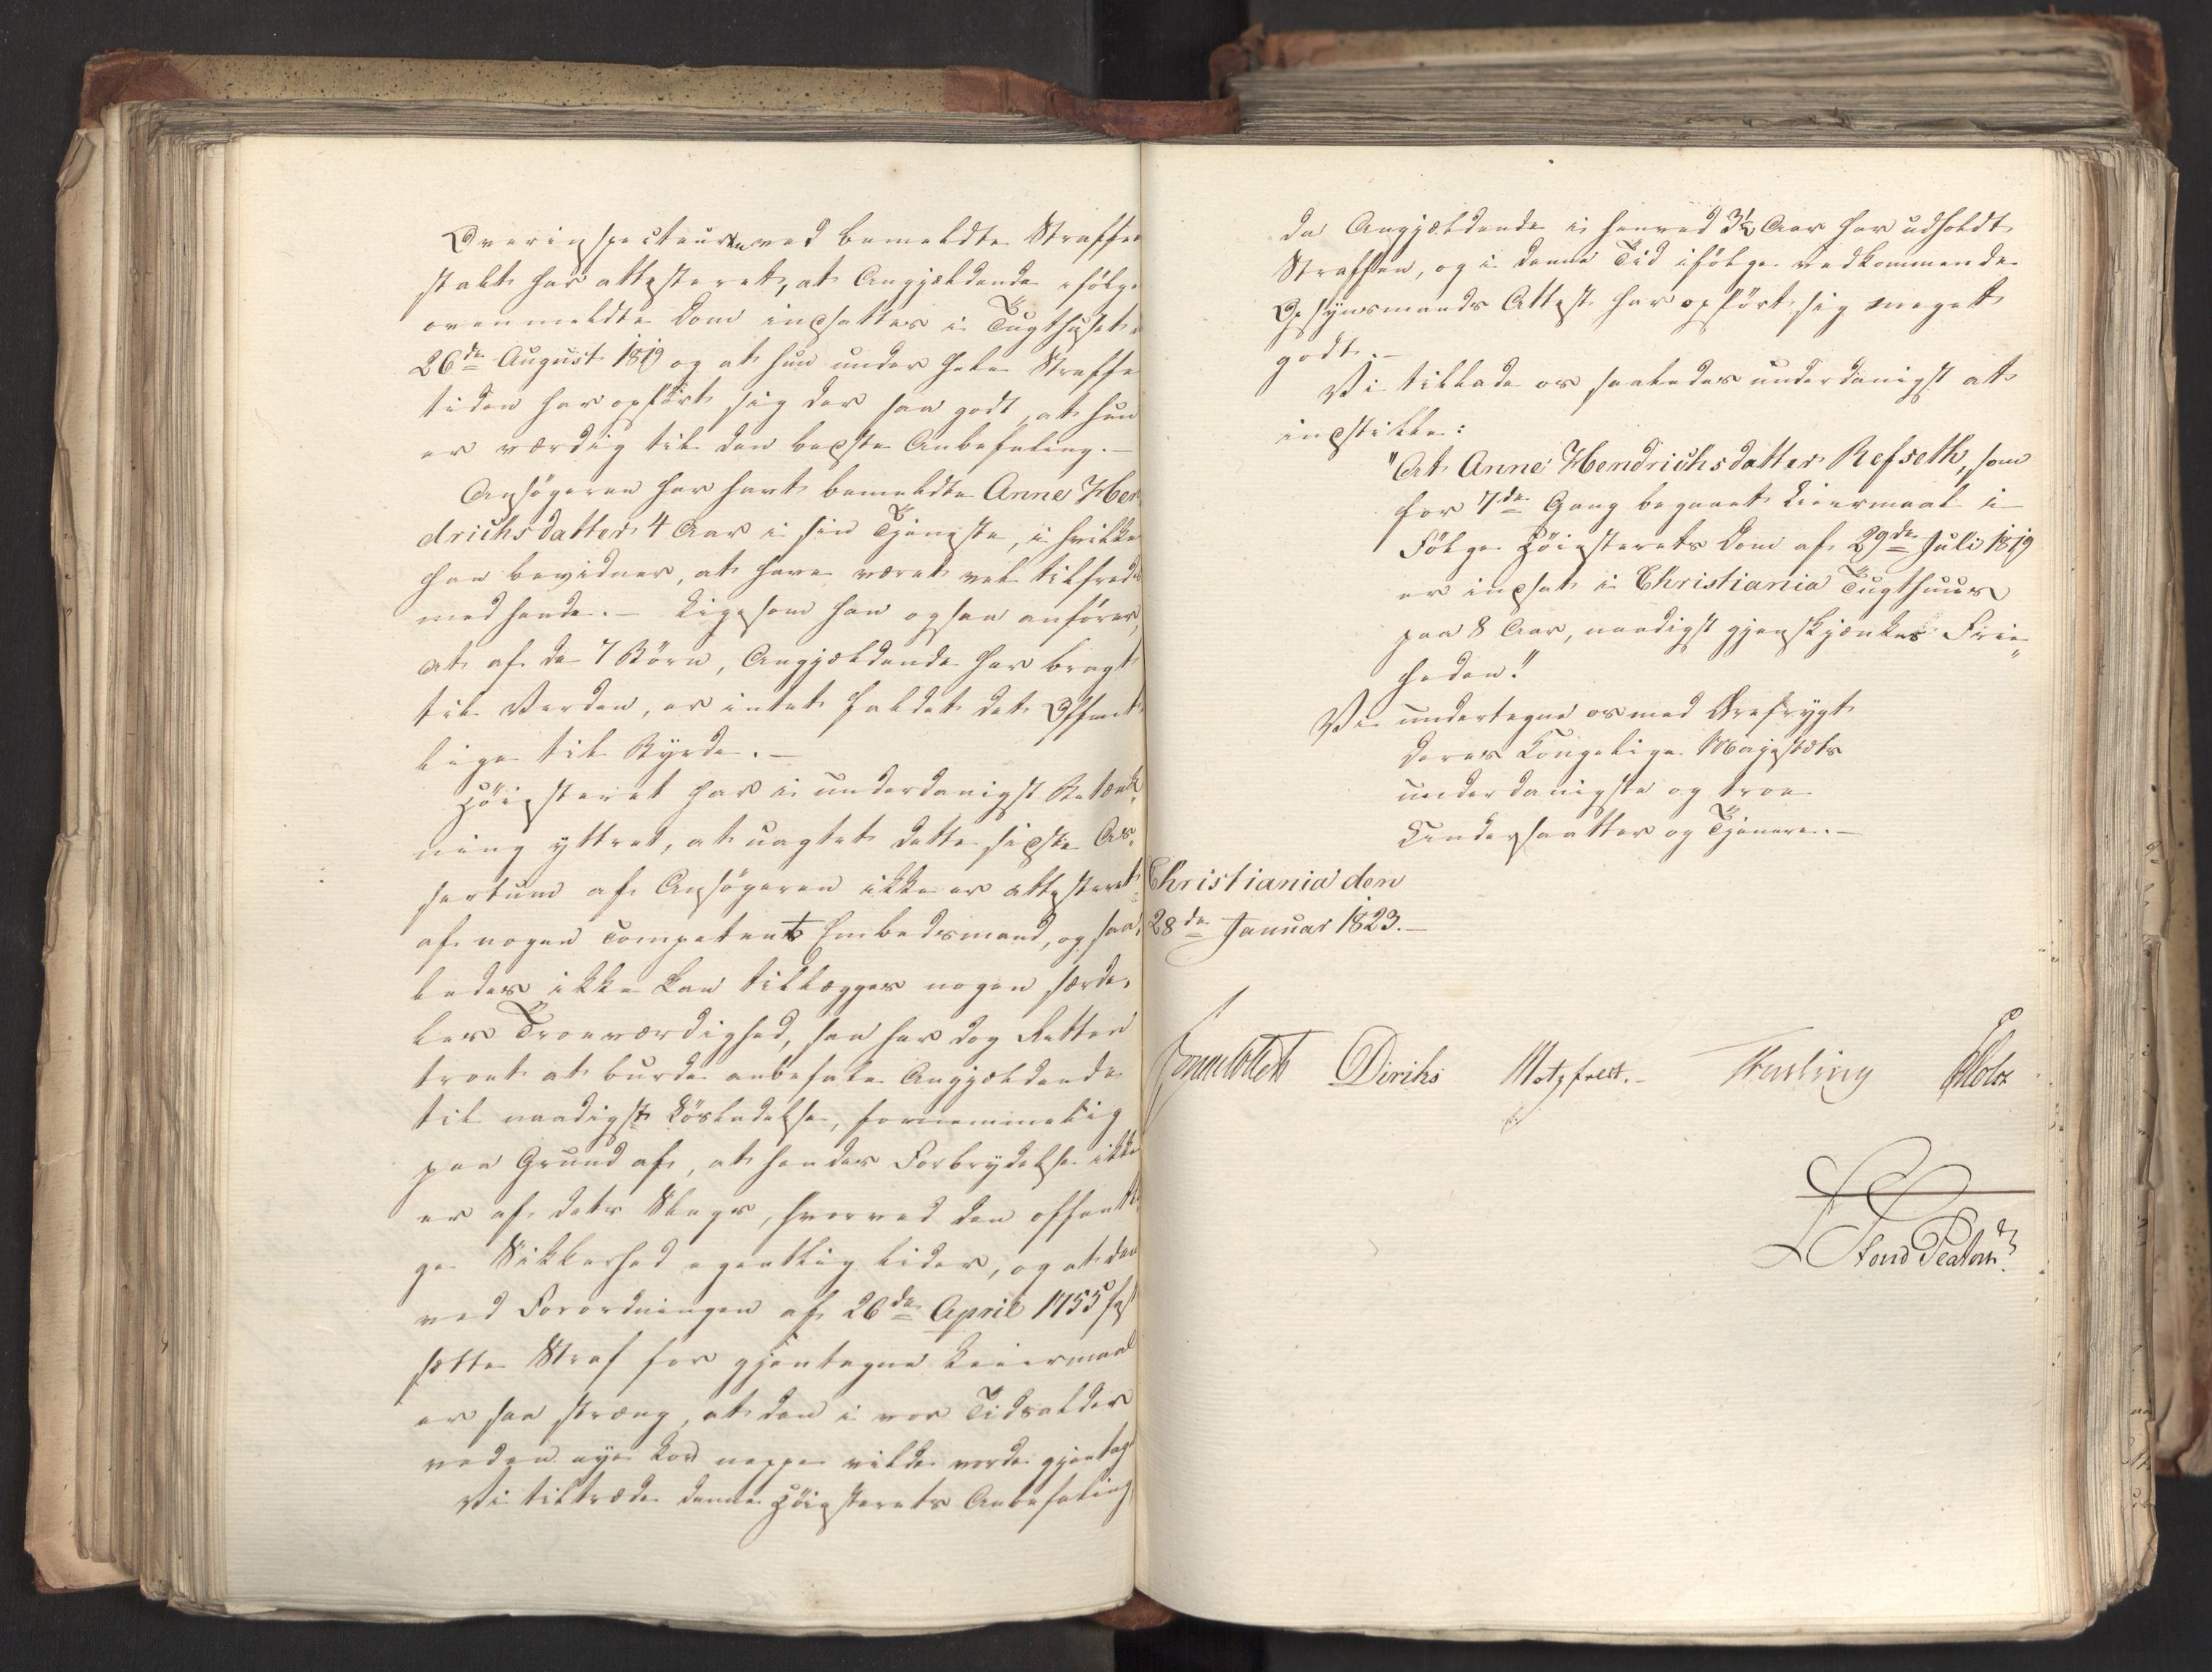 Overinspecteuren ved bemeldte Straffe-
stalt har attesteret, at Angjældende ifölge
ovenmeldte Dom indsattes i Tugthuset
26de August 1819 og at hun under hele Straffe
tiden har opfört sig der saa godt, at hun
er værdig til den bedste Anbefaling.—
Ansögeren har havt bemeldte Anne Hen
drichsdatter 4 Aar i sin Tjeneste, i hvilke
han bevidner, at have været vel tilfreds
med hende.— Ligesom han ogsaa anförer,
at af de 7 Börn, Angjældende har bragt
til Verden, er intet faldet det Offent-
lige til Byrde.—
Höiesteret har i underdanigst Betænk-
ning yttret, at uagtet dette sidste As-
sertum af Ansögeren ikke er attesteret
af nogen competent Embedsmand, og saa-
ledes ikke kan tillægges nogen særde-
les Troeværdighed, saa har dog Retten
troet at burde anbefale Angjældende
til naadigst Lösladelse, fornemmelig
paa Grund af, at hendes Forbrydelse ikke
er af dets Slags, hvorved den offentli-
ge Sikkerhed egentlig lider, og at den
ved Forordningen af 26de April 1755 fast
satte Straf for gjentagne Leiermaal
er saa streng, at den i vor Tidsalder
ved en nye Lov neppe vilde vorde gjentaget
Vi tiltræde denne Höiesterets Anbefaling,
da Angjældende i henved 3½ Aar har udholdt
Straffen, og i denne Tid ifölge vedkommende
Opsynsmands Attest har opfört sig meget
godt.—
Vi tillade os saaledes underdanigst at
indstille:
"At Anne Hendrichsdatter Refseth, som
for 7de Gang begaaet Leiermaal i
Fölge Höiesterets Dom af 29de Juli 1819
er indsat i Christiania Tugthuus
paa 8 Aar, naadigst gjenskjænkes Frie-
heden."
Vi undertegne os med Ærefrygt
Deres Kongelige Majestæts
underdanigste og troe
Undersaatter og Tjenere.—
Christiania den
28de Januar 1823.—
Sommerhielm Diriks Motzfeldt.— Fasting Holst